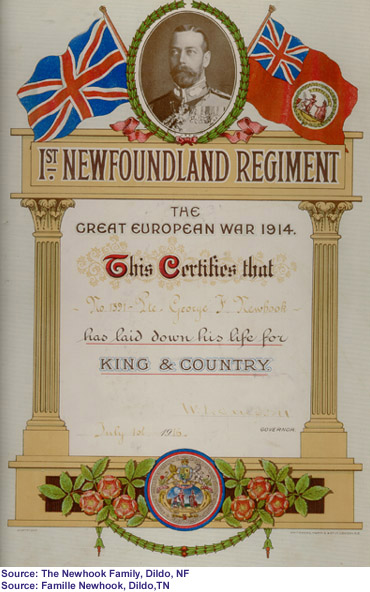 1ST. NEWFOUNDLAND REGIMENT
THE
GREAT EUROPEAN WAR 1914.
This Certifies that
No. 1391 - Pte - George F. Newhook
has laid down his life for
KING & COUNTRY.
July 1st 1916.
GOVERNOR.
Source: The Newhook Family, Dildo, NF
Source: Famille Newhook, Dildo,TN